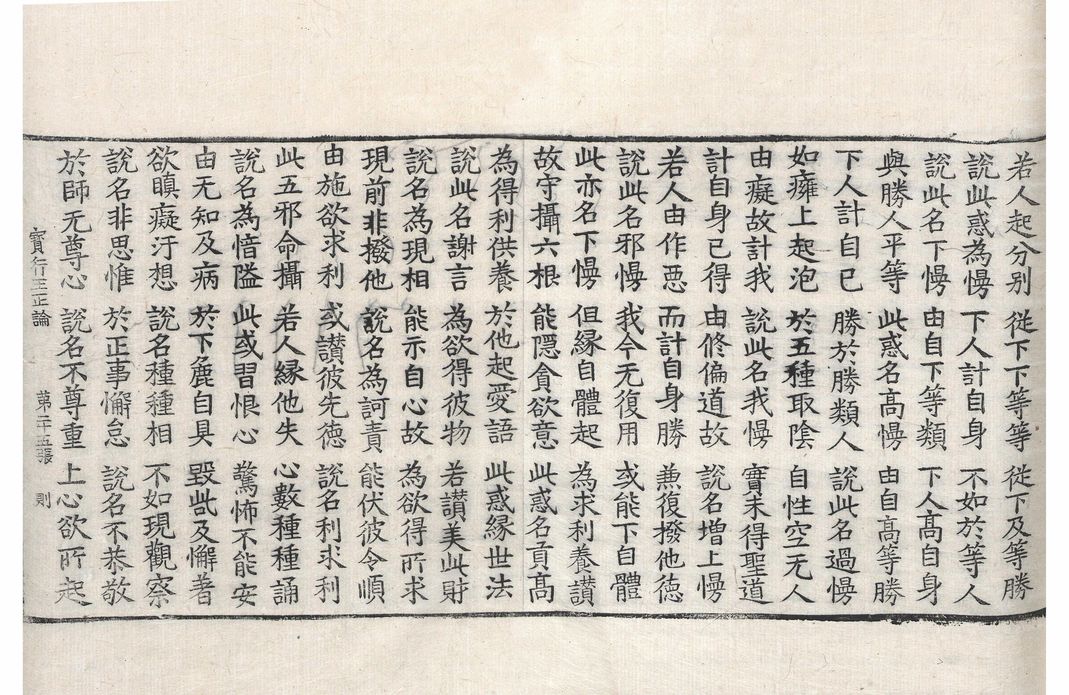 若人起分別 從下下等等 從下及等勝
說此惑為慢 下人計自身 不如於等人
說此名下慢 由自下等類 下人髙自身
與勝人平等 此惑名髙慢 由自髙等勝
下人計自己 勝於勝類人 說此名過慢
如癰上起泡 於五種取陰 自性空无人
由癡故計我 說此名我慢 實未得聖道
計自身已得 由修偏道故 說名增上慢
若人由作惡 而計自身勝 兼復撥他德
說此名邪慢 我今无復用 或能下自體
此亦名下慢 但緣自體起 為求利養讃
故守攝六根 能隱貪欲意 此惑名貢髙
為得利供養 於他起愛語 此惑緣世法
說此名謝言 為欲得彼物 若讃美此財
說名為現相 能示自心故 為欲得所求
現前非撥他 說名為訶責 能伏彼令順
由施欲求利 或讃彼先德 說名利求利
此五邪命攝 若人緣他失 心數種種誦
說名為愔隘 此或習恨心 驚怖不能安
由无知及病 於下麁自具 毀呰及懈著
欲瞋癡汙想 說名種種相 不如現觀察
說名非思惟 於正事懈怠 說名不恭敬
於師无尊心 說名不尊重 上心欲所起
寶行王正論 第二十五張 則